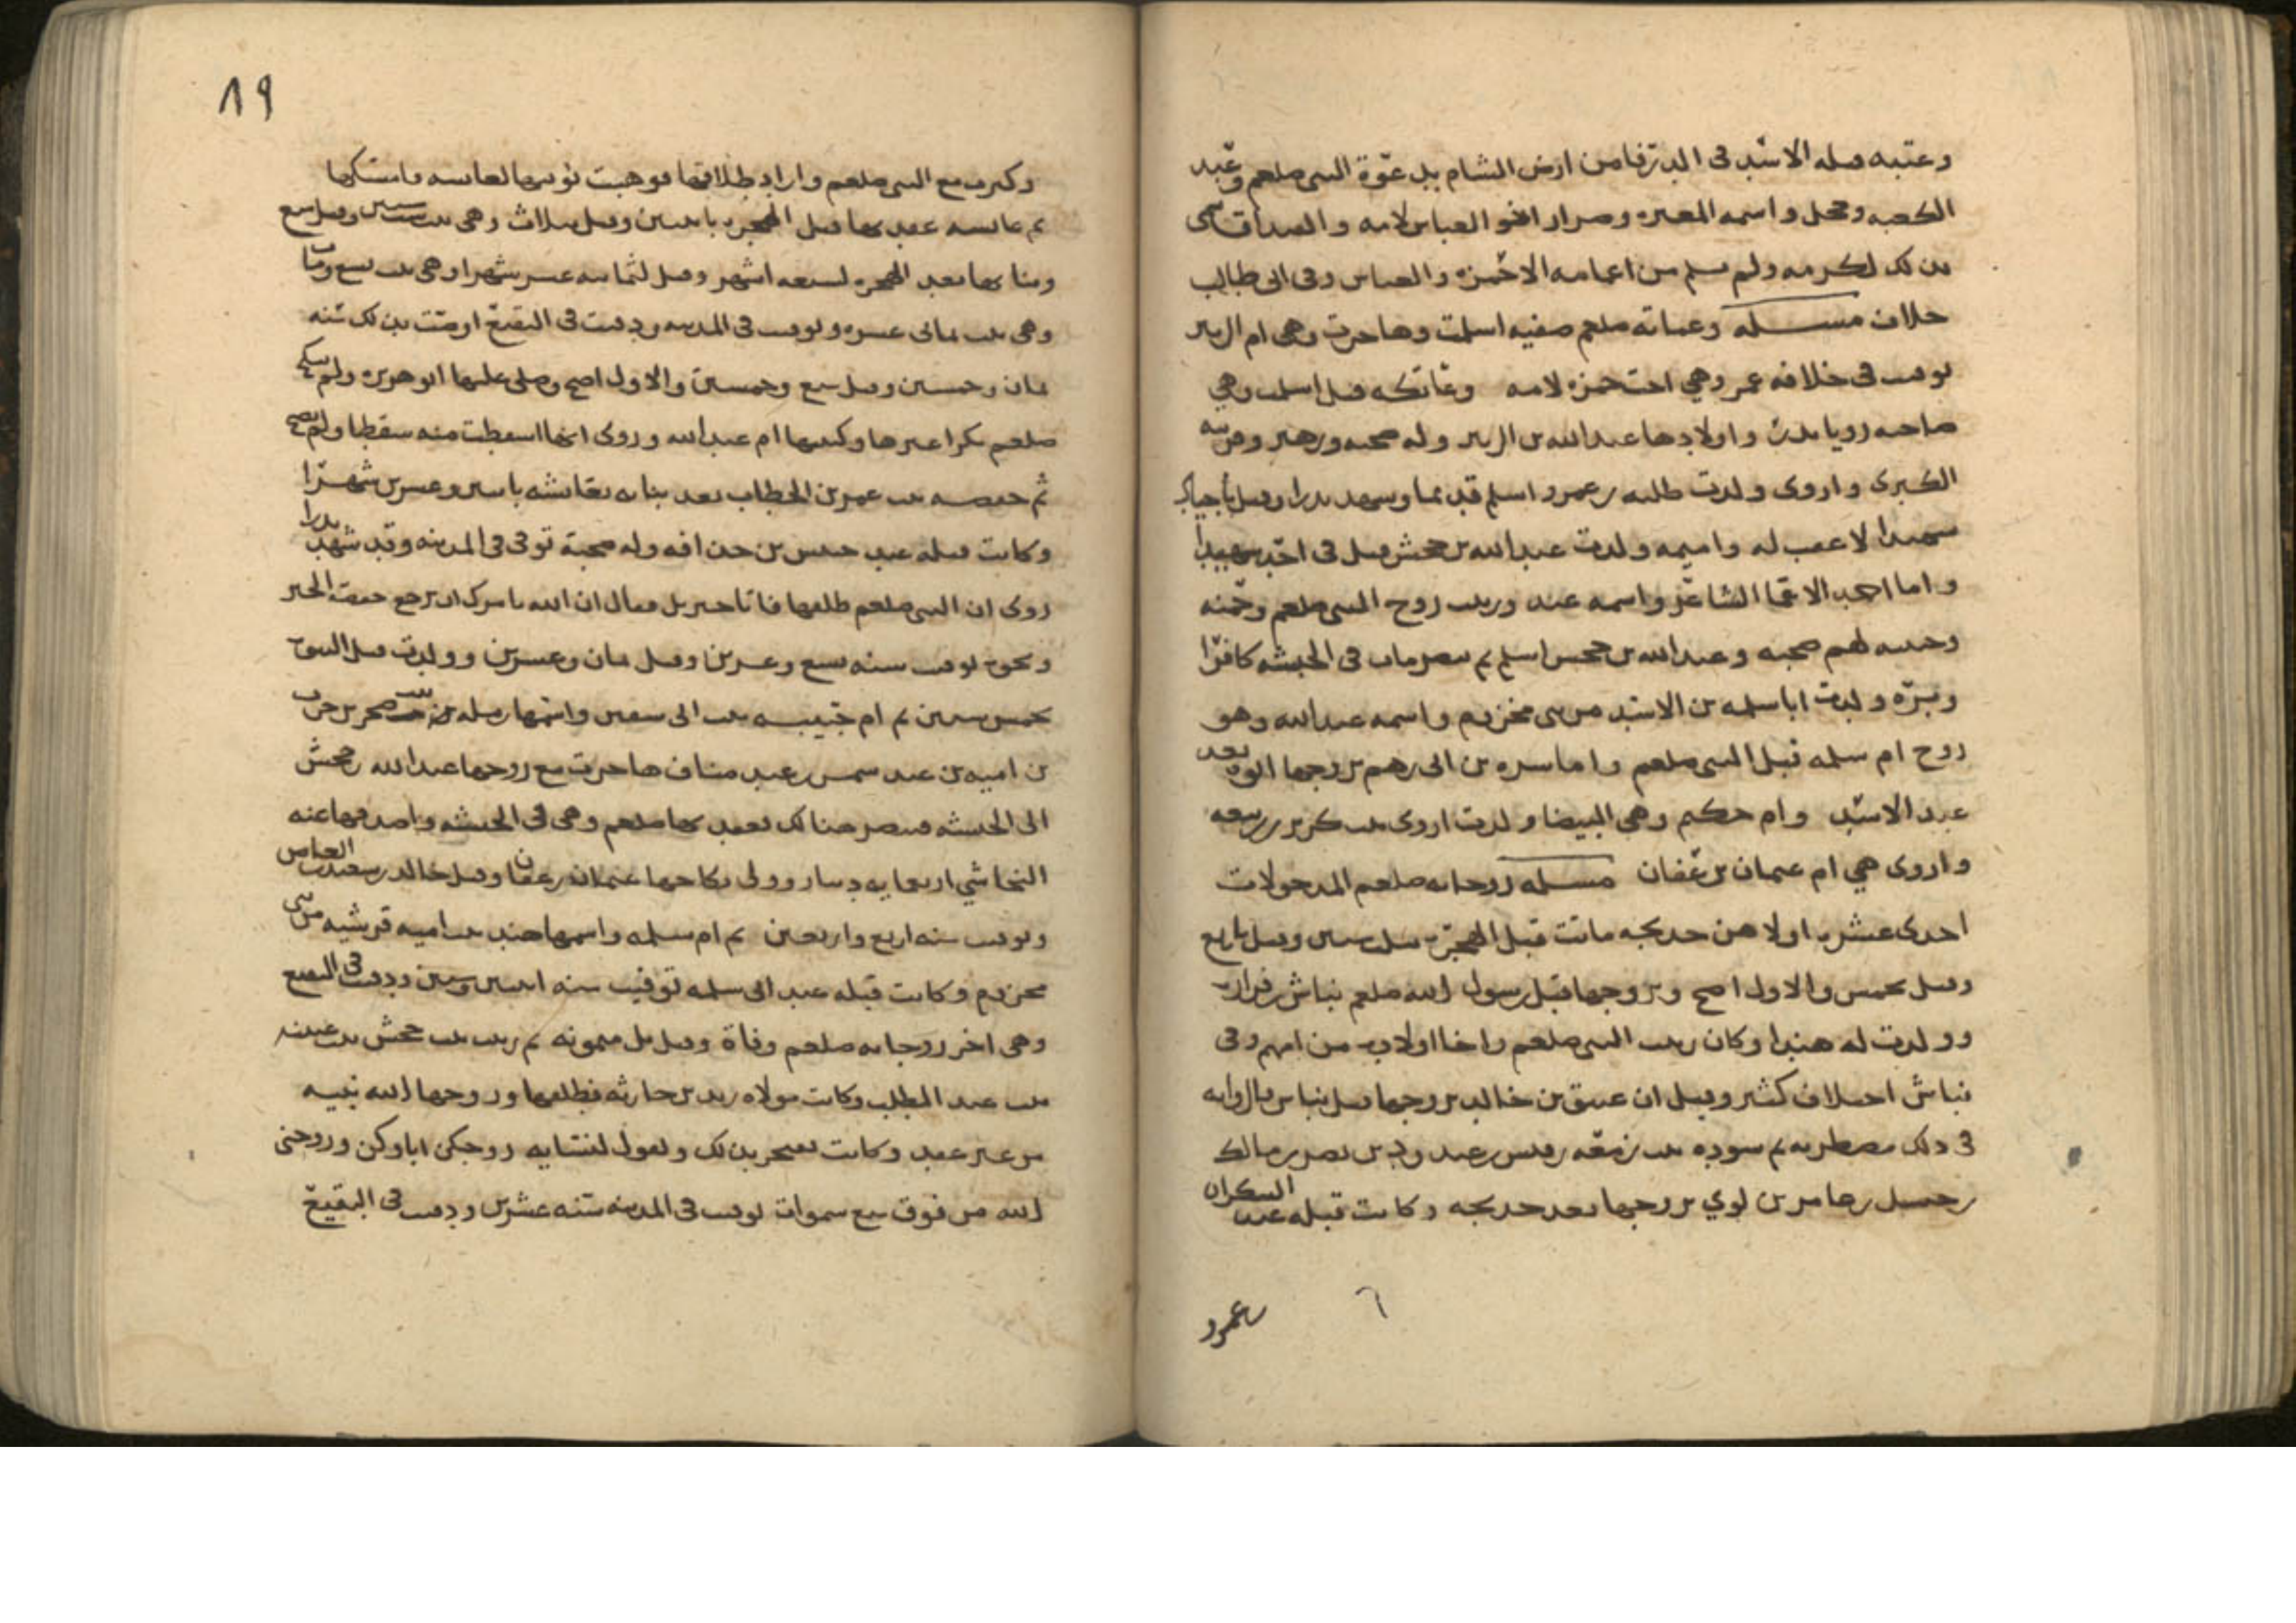 وعتبه قتله الاسد في الزرقا من ارض الشام بدعوة النبي صلعم وعبد
الكعبه وجحل واسمه المغيره وضرار اخو العباس لامه والغيداق سمي
بذلك لكرمه ولم يسلم من اعمامه الا حمزه والعباس وفي ابي طالب
خلاف مسله وعماته صلعم صفيه اسلمت وهاجرت وهي ام الزبير
توفيت في خلافه عمر وهي اخت حمزه لامه وعاتكه قيل اسلمت وهي
صاحبه رويا بدر واولادها عبد الله وله صحبه وزهير وقريبه
الكبرى واروى ولدت طليب بن عمرو اسلم قديما وشهد بدرا وقتل باجنادين
شهيدا لا عقب له واميمه ولدت عبد الله بن جحش قتل في احد شهيدا
واما احمد الاعما الشاعر واسمه عبد وزينب زوج النبي صلعم وحمنه
وحبيبه لهم صحبه وعبد الله بن جحش اسلم ثم تنصر مات في الحبشه كافرا
وبره ولدت ابا سلمه بن الاسد من بني مخزوم واسمه عبد الله وهو
زوج ام سلمه قبل النبي صلعم واما سبره بن ابي رهم تزوجها ابوه بعد
عبد الاسد وام حكيم وهي البيضا ولدت اروى بنت كريز بن ربيعه
واروى هي ام عثمان بن عفان مسله زوجاته صلعم المدخولات
احدى عشر اولاهن خديجه ماتت قبل الهجره وقيل باربع
وقيل بخمس والاول اصح وتزوجها قبل رسول الله صلعم نباش بن زراره
وولدت له هندا وكان ربيب النبي صلعم واخا اولاده من امهم وفي
نباش اختلاف كثير وقيل ان عتيق بن خالد تزوجها قبل نباش والروايه
في ذلك مضطربه ثم سوده بنت زمعه بن قيس بن عبد ود بن نصر بن مالك
بن حسل بن عامر بن لوي تزوجها بعد خديجه وكانت قبله عند السكران
بن عمرو
٦
٨٩
وكبرت مع النبي صلعم واراد طلاقها فوهبت نوبتها لعايشه فامسكها
ثم عايشه عقد بها قبل الهجره باثنتين وقيل بثلاث وهي بنت ست وقيل سبع
وبنا بها بعد الهجره لسبعه اشهر وقيل لثمانيه عشر شهرا وهي بنت تسع ومات
وهي بنت ثماني عشره وتوفيت في المدينه ودفنت في البقيع اوصت بذلك سنه
ثمان وخمسين وقيل سبع وخمسين والاول اصح وصلى عليها ابو هريره ولم ينكح
صلعم بكرا غيرها وكنيتها ام عبد الله وروى انها اسقطت منه سقطا ولم يصح
ثم حفصه بنت عمر بن الخطاب بعد بنايه بعايشه باثنين وعشرين شهرا
وكانت قبله عند خنيس بن حذافه وله صحبة توفي في المدينه وقد شهد بدرا
روى ان النبي صلعم طلقها فاتاه جبريل فقال ان الله يامرك ان تراجع حفصه الخبر
ونحوه توفيت سنه سبع وعشرين وقيل ثمان وعشرين وولدت قبل النبوه
بخمس سنين ثم ام حبيبه بنت ابي سفين واسمها رمله بنت صخر بن حرب
بن اميه بن عبد شمس بن عبد مناف هاجرت مع زوجها عبد الله بن جحش
الى الحبشه فتنصر هنالك فعقد بها صلعم وهي في الحبشه واصدقها عنه
النجاشي اربعمايه دينار وولي نكاحها عثمان بن عفان وقيل خالد بن سعيد بن العاص
وتوفيت سنه اربع واربعين ثم ام سلمه واسمها هند بنت اميه قرشيه من بني
مخزوم وكانت قبله عند ابي سلمه توفيت سنه اثنين وستين ودفنت في البقيع
وهي اخر زوجاته صلعم وفاة وقيل بل ميمونه ثم زينب بنت جحش بنت عمته
بنت عبد المطلب وكانت مولاه زيد بن حارثه فطلقها وزوجها الله نبيه
من غير عقد وكانت تفتخر بذلك وتقول لنسايه زوجكن اباوكن وزوجني
الله من فوق سبع سموات توفيت في المدينه سنه عشرين ودفنت في البقيع